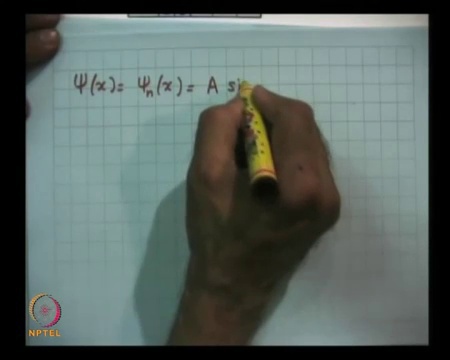 Ψ(x) = Ψₙ(x) = A si
NPTEL